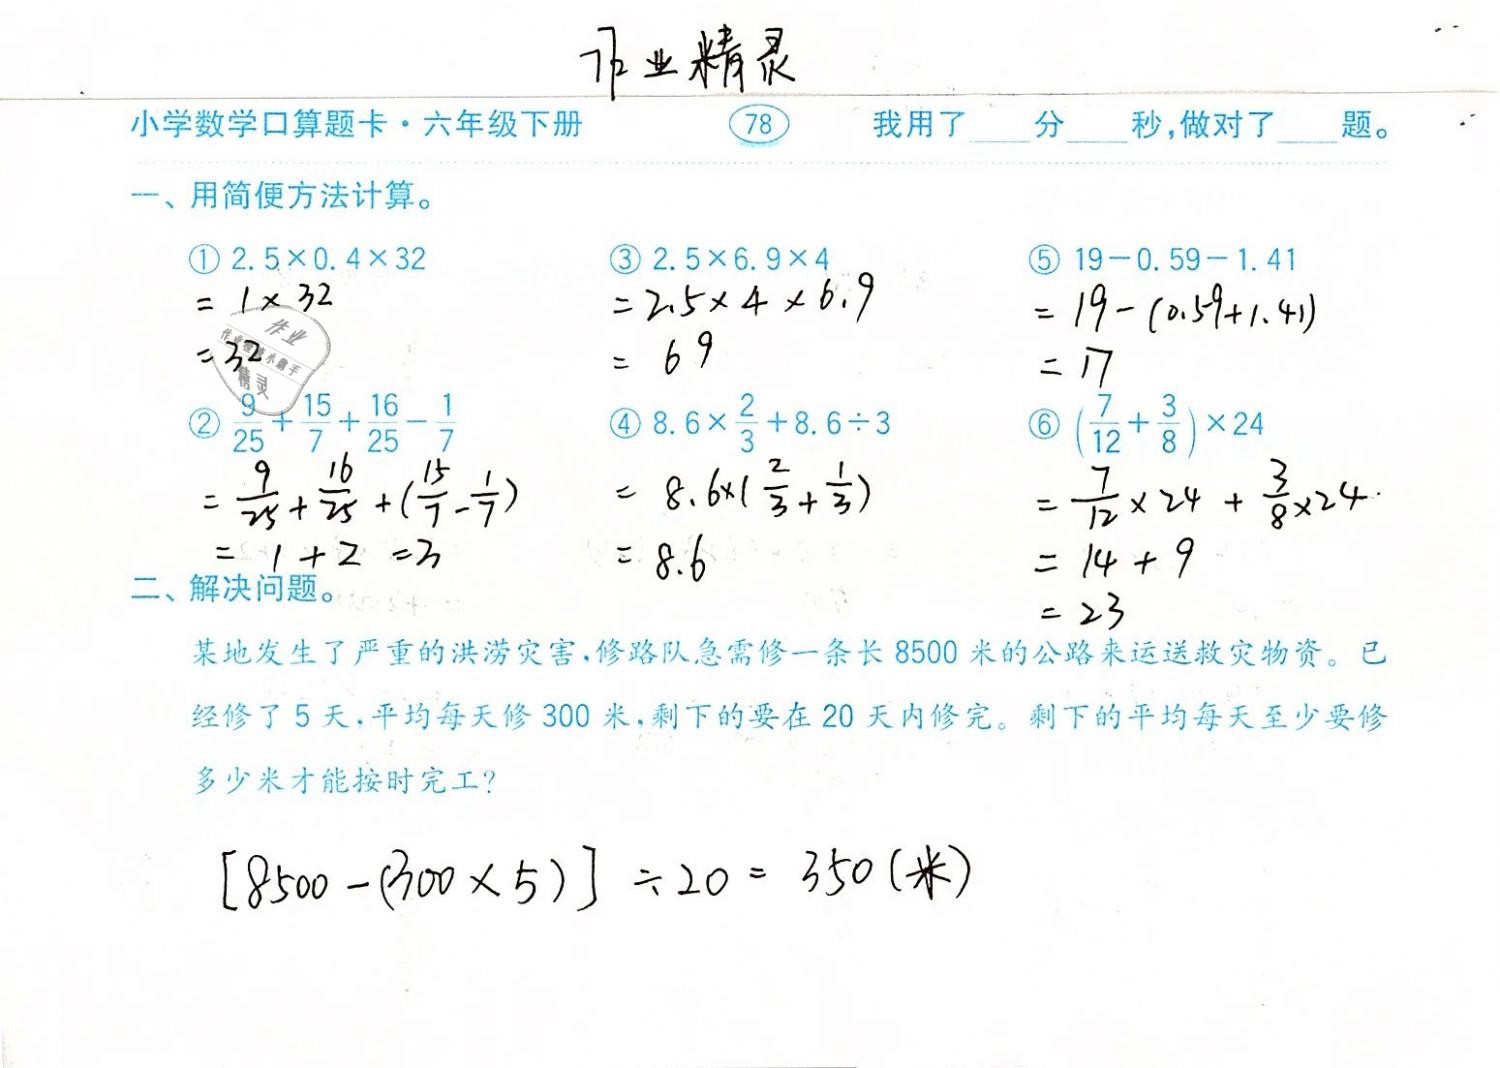 作业精灵
小学数学口算题卡·六年级下册 78 我用了____分____秒,做对了____题。
一、用简便方法计算。
① 2.5×0.4×32 ③ 2.5×6.9×4 ⑤ 19-0.59-1.41
= 1×32 = 2.5×4×6.9 = 19-(0.59+1.41)
= 32 = 69 = 17
作业
作业精灵小助手
精灵
② 9/25+15/7+16/25-1/7 ④ 8.6×2/3+8.6÷3 ⑥ (7/12+3/8)×24
= 9/25+16/25+(15/7-1/7) = 8.6×(2/3+1/3) = 7/12×24+3/8×24
= 1+2 =3 = 8.6 = 14+9
= 23
二、解决问题。
某地发生了严重的洪涝灾害,修路队急需修一条长 8500 米的公路来运送救灾物资。已
经修了 5 天,平均每天修 300 米,剩下的要在 20 天内修完。剩下的平均每天至少要修
多少米才能按时完工?
[8500-(300×5)]÷20=350(米)